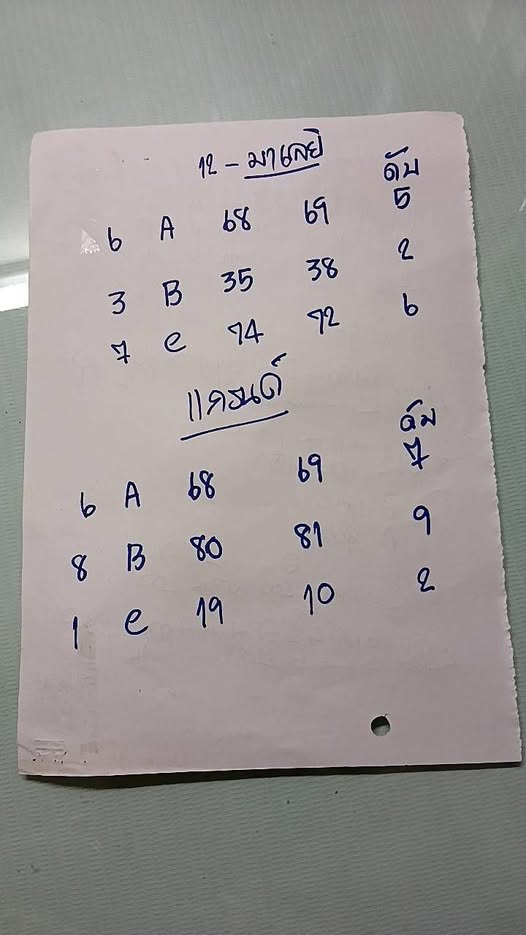 12 - มาเลย์
ดับ
6 A 68 69 5
3 B 35 38 2
7 C 74 72 6
แกรนด์
ดับ
6 A 68 69 7
8 B 80 81 9
1 C 19 10 2